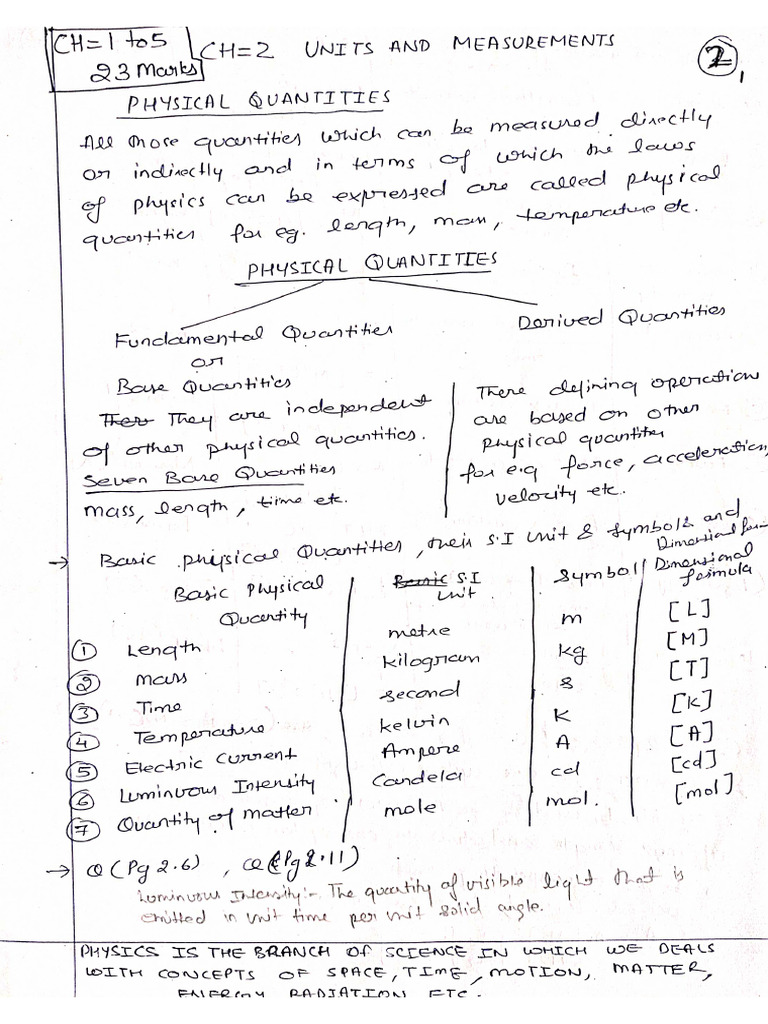 CH=1 to 5
23 Marks
CH=2 UNITS AND MEASUREMENTS
2
PHYSICAL QUANTITIES
All those quantities which can be measured directly
or indirectly and in terms of which the laws
of physics can be expressed are called physical
quantities for eg. length, mass, temperature etc.
PHYSICAL QUANTITIES
Fundamental Quantities
or
Base Quantities
They are independent
of other physical quantities.
Seven Base Quantities
mass, length, time etc.
Derived Quantities
There defining operation
are based on other
physical quantities
for e.g force, acceleration,
velocity etc.
→ Basic physical Quantities, their S.I Unit & Symbols and
Dimensional form
Basic Physical Quantity | Basic S.I Unit | Symbol | Dimensional formula
① Length metre m [L]
② Mass kilogram kg [M]
③ Time second s [T]
④ Temperature kelvin K [K]
⑤ Electric Current Ampere A [A]
⑥ Luminuous Intensity Candela cd [cd]
⑦ Quantity of matter mole mol. [mol]
→ Q (Pg 2.6) , Q (Pg 2.11)
Luminuous Intensity:- The quantity of visible light that is
emitted in unit time per unit solid angle.
PHYSICS IS THE BRANCH OF SCIENCE IN WHICH WE DEALS
WITH CONCEPTS OF SPACE, TIME, MOTION, MATTER,
ENERGY RADIATION ETC.